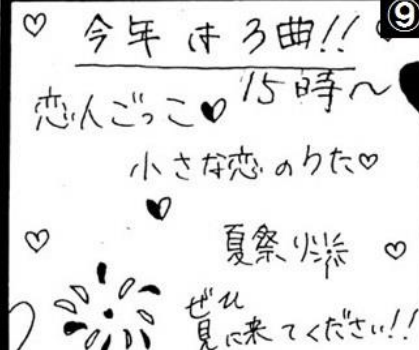 ⑨
今年は3曲!!
15時〜
恋人ごっこ♥
小さな恋のうた♡
夏祭り
ぜひ
見に来てください!!